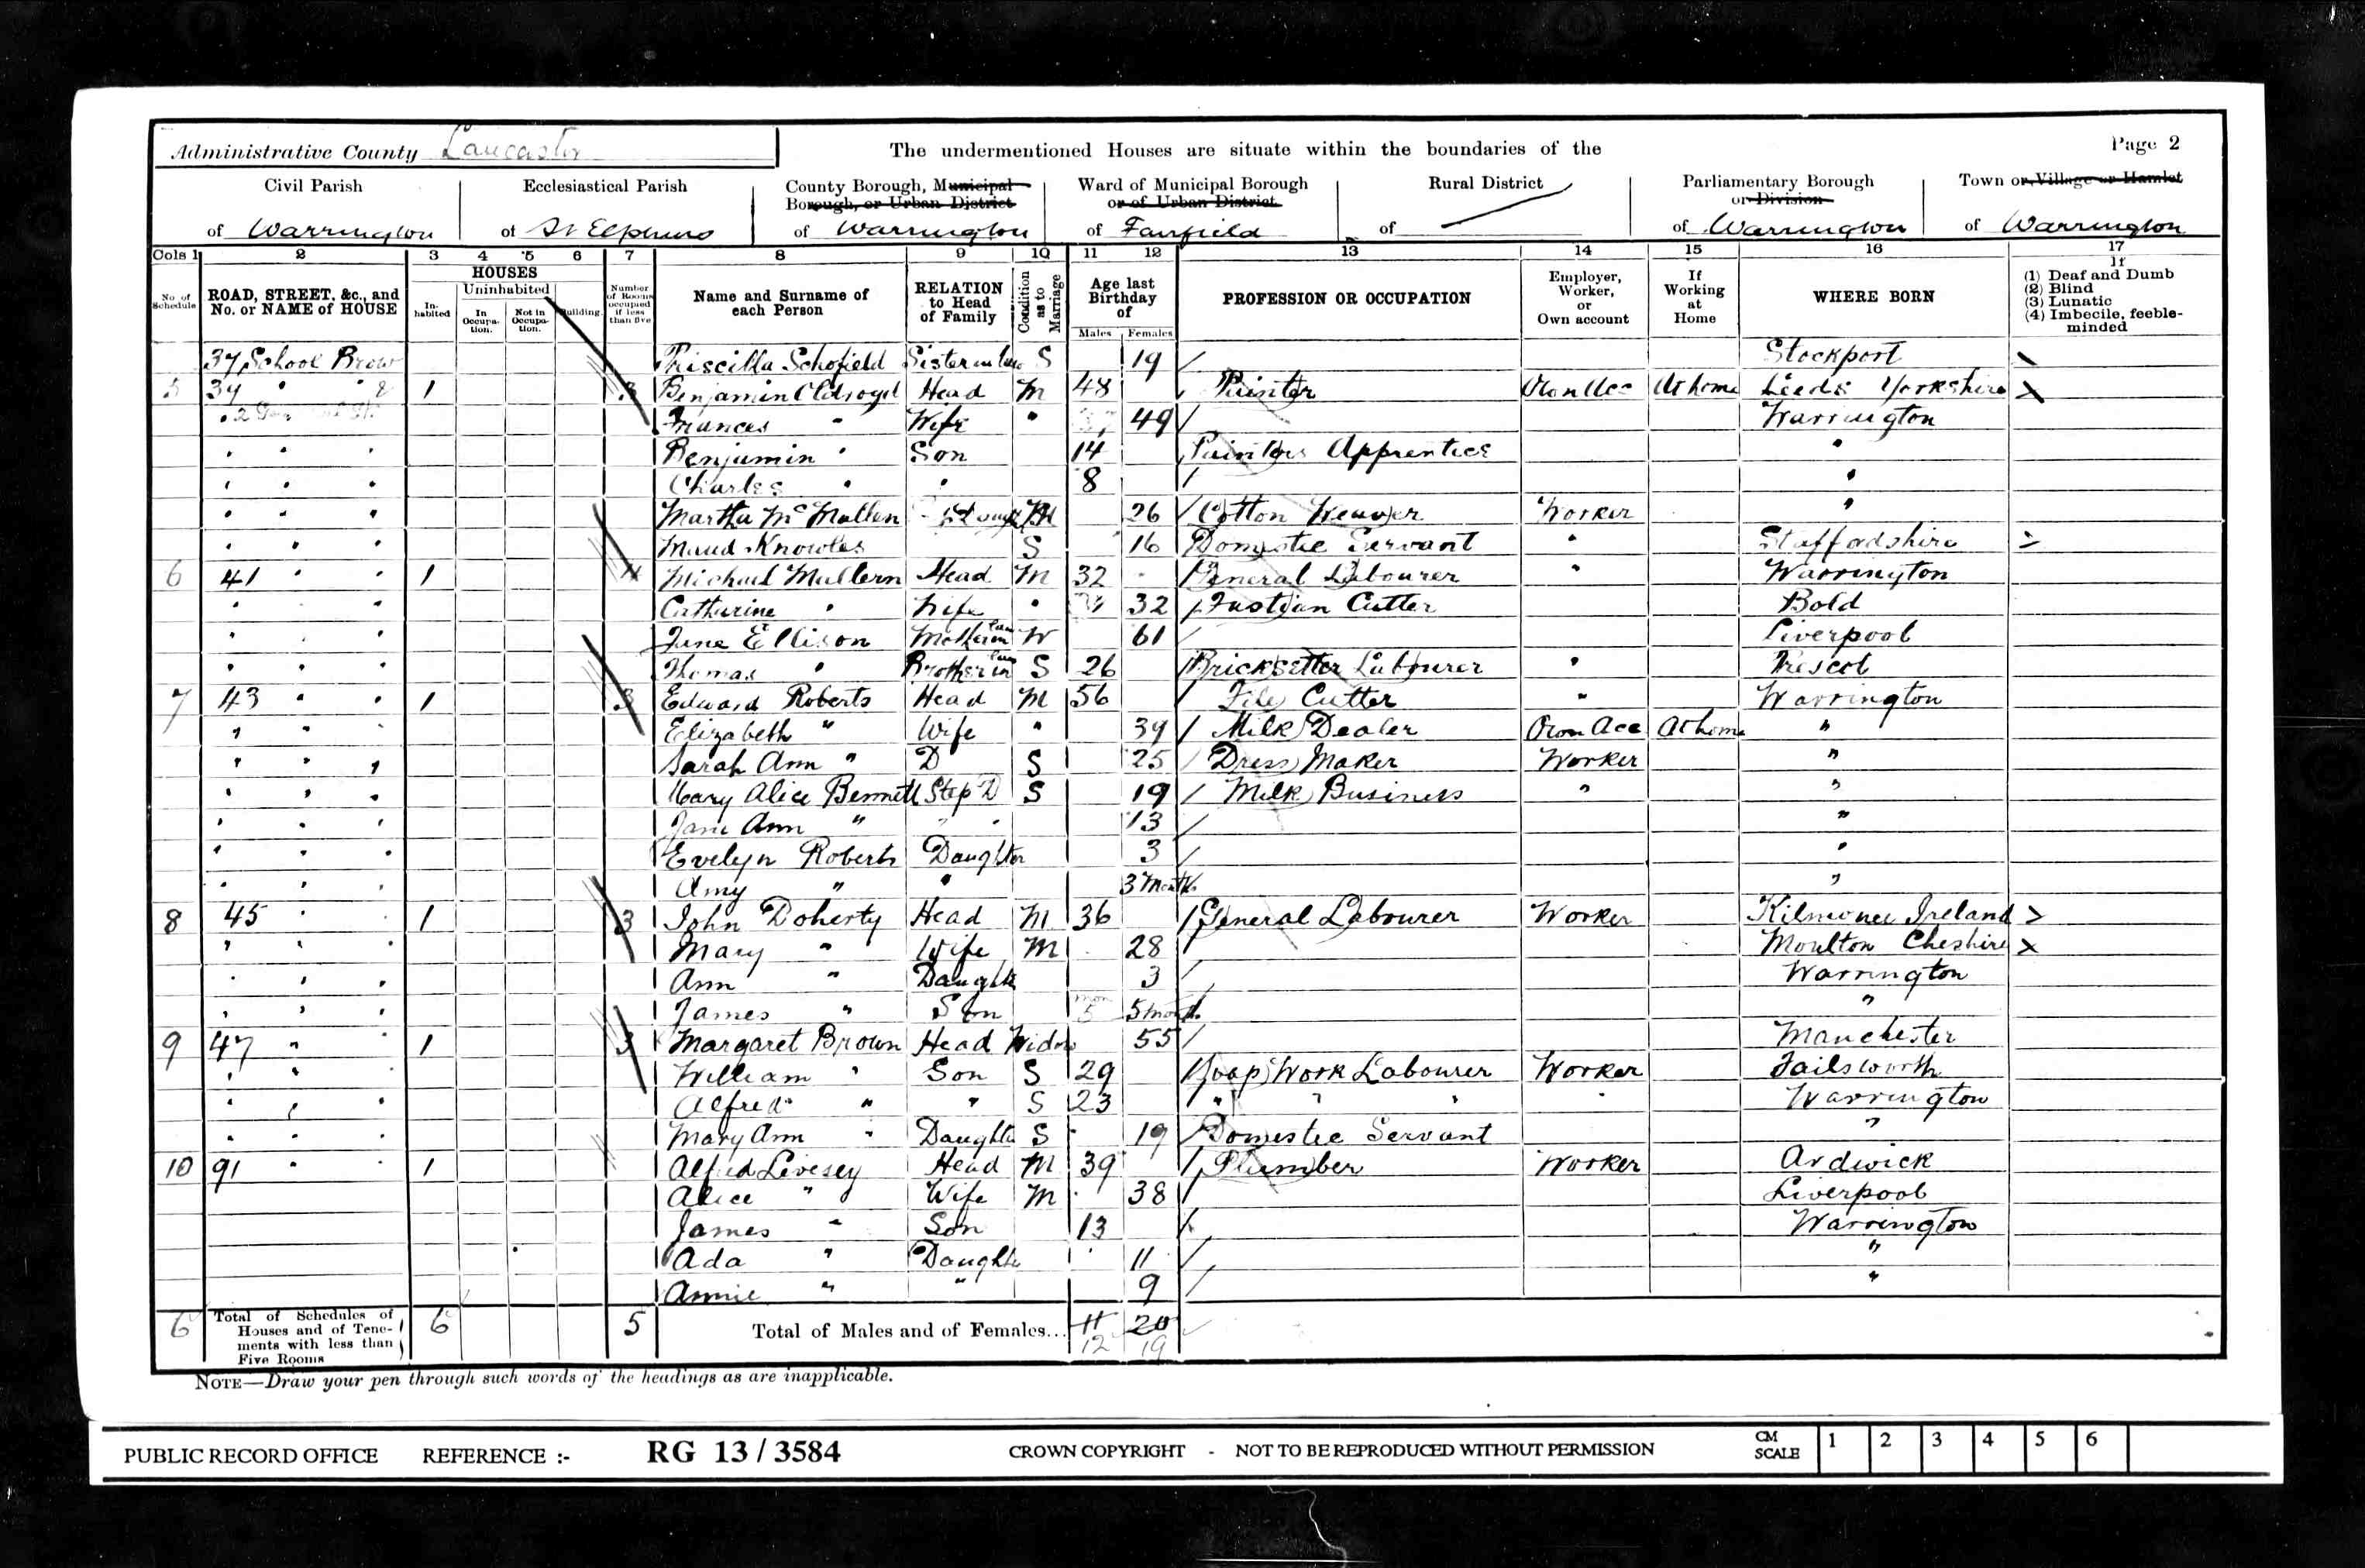 Administrative County Lancaster
The undermentioned Houses are situate within the boundaries of the
Page 2
Civil Parish of Warrington
Ecclesiastical Parish of St Elphins
County Borough, Municipal Borough, or Urban District of Warrington
Ward of Municipal Borough or of Urban District of Fairfield
Rural District of
Parliamentary Borough or Division of Warrington
Town or Village or Hamlet of Warrington
Cols 1 2 3 4 5 6 7 8 9 10 11 12 13 14 15 16 17
No. of Schedule
ROAD, STREET, &c., and No. or NAME of HOUSE
HOUSES
In-habited
Uninhabited
In Occupa-tion.
Not in Occupa-tion.
Building.
Number of Rooms occupied if less than five
Name and Surname of each Person
RELATION to Head of Family
Condition as to Marriage
Age last Birthday of
Males Females
PROFESSION OR OCCUPATION
Employer, Worker, or Own account
If Working at Home
WHERE BORN
If (1) Deaf and Dumb (2) Blind (3) Lunatic (4) Imbecile, feeble-minded
37 School Brow Priscilla Schofield Sister in law S 19 Stockport
5 39 " " 1 3 Benjamin Oldroyd Head M 48 Painter Own Acc At home Leeds Yorkshire
Frances " Wife " 49 Warrington
Benjamin " Son 14 Painters Apprentice "
Charles " " 8 "
Martha McMullen M 26 Cotton Weaver Worker "
Maud Knowles S 16 Domestic Servant " Staffordshire
6 41 " " 1 4 Michael Mullern Head M 32 General Labourer " Warrington
Catherine " Wife " 32 Fustian Cutter Bold
Jane Ellison Mother in law W 61 Liverpool
Thomas " Brother in law S 26 Bricksetter Labourer " Prescot
7 43 " " 1 3 Edward Roberts Head M 56 File Cutter " Warrington
Elizabeth " Wife " 39 Milk Dealer Own Acc At home "
Sarah Ann " D S 25 Dress Maker Worker "
Mary Alice Bennett Step D S 19 Milk Business " "
Jane Ann " " 13 "
Evelyn Roberts Daughter 3 "
Amy " " 3 Months "
8 45 " 1 3 John Doherty Head M 36 General Labourer Worker Ireland
Mary " Wife M 28 Moulton Cheshire
Ann " Daughter 3 Warrington
James " Son 5 mon 5 Month "
9 47 " 1 3 Margaret Brown Head Widow 55 Manchester
William " Son S 29 Soap Work Labourer Worker Failsworth
Alfred " " S 23 " " " " Warrington
Mary Ann " Daughter S 19 Domestic Servant "
10 91 " " 1 Alfred Livesey Head M 39 Plumber Worker Ardwick
Alice " Wife M 38 Liverpool
James " Son 13 Warrington
Ada " Daughter 11 "
Annie " " 9 "
6 Total of Schedules of Houses and of Tene-ments with less than Five Rooms 6 5 Total of Males and of Females... 11 20
12 19
NOTE—Draw your pen through such words of the headings as are inapplicable.
PUBLIC RECORD OFFICE REFERENCE :- RG 13 / 3584 CROWN COPYRIGHT - NOT TO BE REPRODUCED WITHOUT PERMISSION CM SCALE 1 2 3 4 5 6